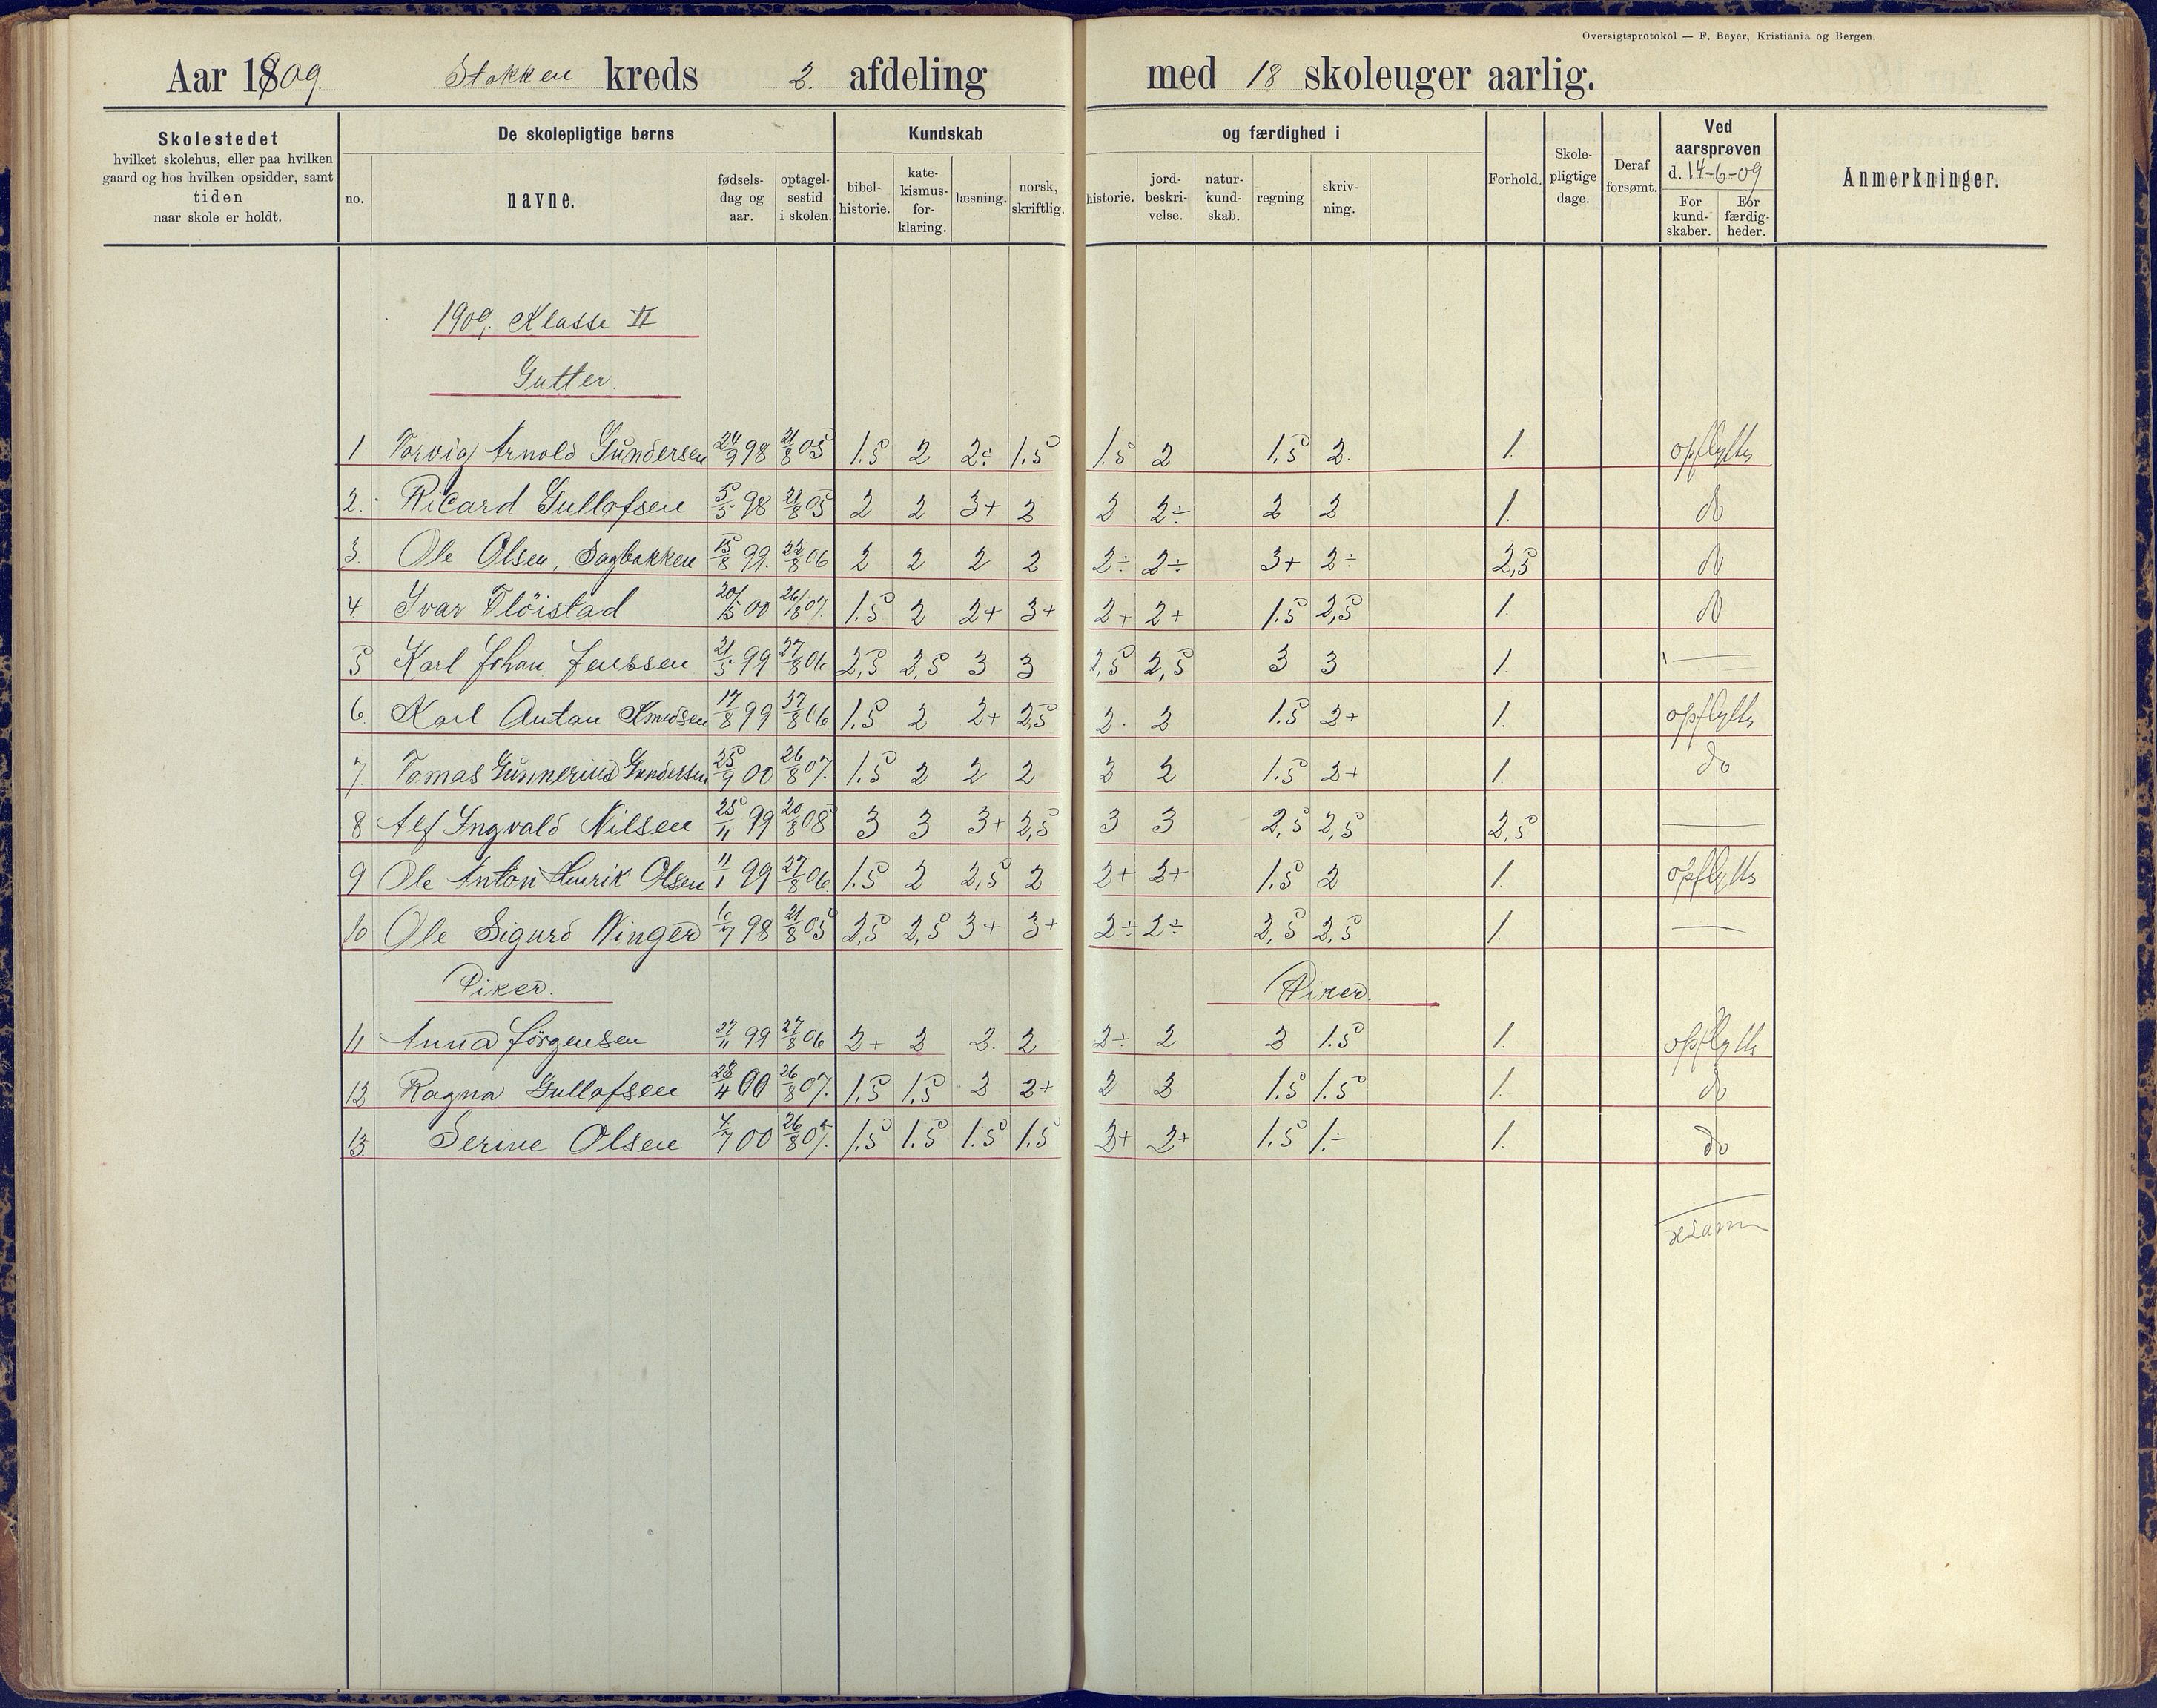 Oversigtsprotokol — F. Beyer, Kristiania og Bergen.
Aar 1809. Stokken kreds 2. afdeling med 18 skoleuger aarlig.
Skolestedet
hvilket skolehus, eller paa hvilken
gaard og hos hvilken opsidder, samt
tiden
naar skole er holdt.
De skolepligtige børns
no.
navne.
fødsels-
dag og
aar.
optagel-
sestid
i skolen.
Kundskab
bibel-
historie.
kate-
kismus-
for-
klaring.
læsning.
norsk,
skriftlig.
og færdighed i
historie.
jord-
beskri-
velse.
natur-
kund-
skab.
regning
skriv-
ning.
Forhold.
Skole-
pligtige
dage.
Deraf
forsømt.
Ved
aarsprøven
d. 14-6-09
For
kund-
skaber.
For
færdig-
heder.
Anmerkninger.
1909. Klasse II
Gutter.
1 Torvig Arnold Gundersen 24/9 98 21/8 05 1.5 2 2÷ 1.5 1.5 2 1.5 2. 1. opflyttes
2. Ricard Gullofsen 5/5 98 21/8 05 2 2 3+ 2 2 2÷ 2 2 1. do
3. Ole Olsen, Sagbakken 15/8 99. 22/8 06 2 2 2 2 2÷ 2÷ 3+ 2÷ 2,5 do
4 Ivar Fløistad 20/5 00 26/8 07. 1.5 2 2+ 3+ 2+ 2+ 1.5 2,5 1. do
5 Karl Johan Jenssen 21/5 99 27/8 06 2,5 2,5 3 3 2,5 2,5 3 3 1. —
6. Karl Anton Knudsen 17/8 99 27/8 06 1.5 2 2+ 2,5 2. 2 1.5 2+ 1. opflyttes
7. Tomas Gunnerius Gundersen 25/9 00 26/8 07. 1.5 2 2 2 2 2 1.5 2+ 1. do
8 Alf Ingvald Nilsen 25/11 99 20/8 08 3 3 3+ 2,5 3 3 2,5 2,5 2,5 —
9 Ole Anton Henrik Olsen 11/1 99 27/8 06 1.5 2 2,5 2 2+ 2+ 1.5 2 1. opflyttes
10 Ole Sigurd Winger 6/7 98 21/8 05 2,5 2,5 3+ 3+ 2÷ 2÷ 2,5 2,5 1. —
Piker. Piker.
11 Anna Jörgensen 27/11 99 27/8 06 2+ 2 2. 2 2÷ 2 2 1.5 1. opflyttes
12 Ragna Gullofsen 28/4 00 26/8 07. 1.5 1.5 2 2+ 2 2 1.5 1.5 1. do
13 Serine Olsen 4/7 00 26/8 07. 1.5 1.5 1.5 1.5 2+ 2+ 1.5 1.÷ 1. do